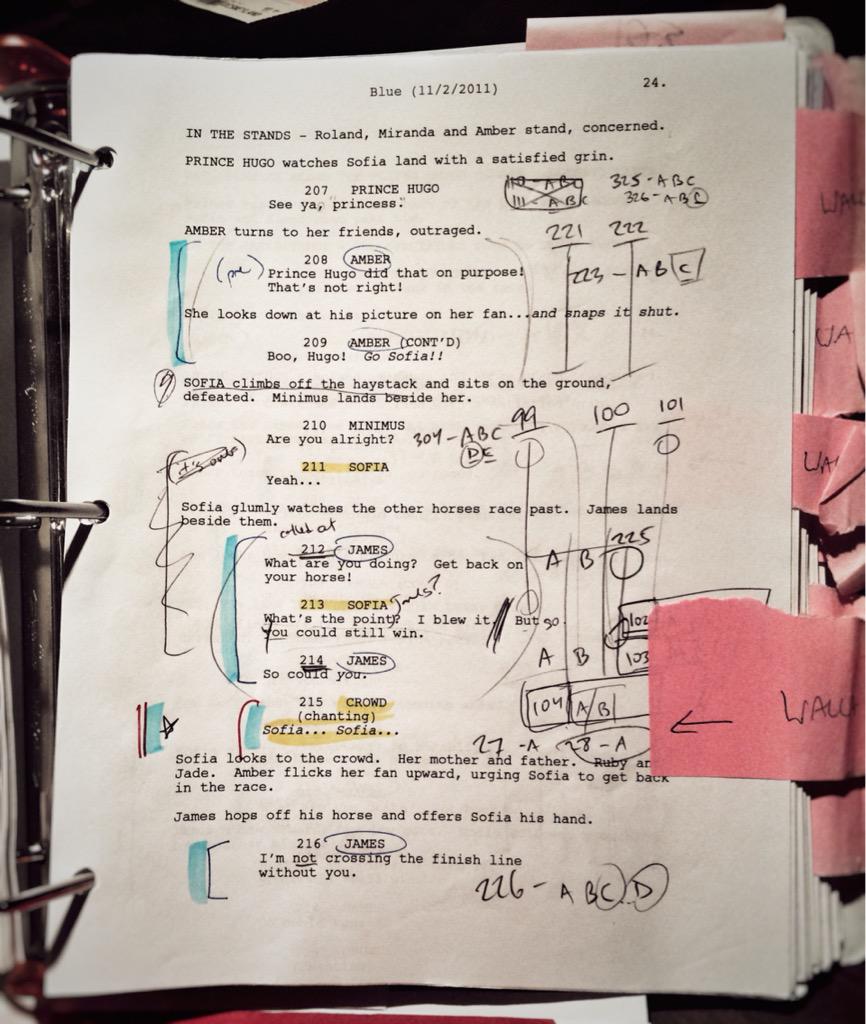 Blue (11/2/2011) 24.
IN THE STANDS - Roland, Miranda and Amber stand, concerned.
PRINCE HUGO watches Sofia land with a satisfied grin.
207 PRINCE HUGO
See ya, princess.
110-ABC
111-ABC
325-ABC
326-ABC
AMBER turns to her friends, outraged.
221 222
208 AMBER
(pre)
Prince Hugo did that on purpose!
That's not right!
223-ABC
She looks down at his picture on her fan...and snaps it shut.
209 AMBER (CONT'D)
Boo, Hugo! Go Sofia!!
9
SOFIA climbs off the haystack and sits on the ground,
defeated. Minimus lands beside her.
99 100 101
210 MINIMUS
Are you alright?
304-ABC
DE
211 SOFIA
Yeah...
Sofia glumly watches the other horses race past. James lands
beside them.
called at
225
212 JAMES
What are you doing? Get back on
your horse!
A B
213 SOFIA
What's the point? I blew it. But go.
You could still win.
102
214 JAMES
So could you.
A B
103
215 CROWD
(chanting)
Sofia... Sofia...
104 A/B
27-A 28-A
WALLA
Sofia looks to the crowd. Her mother and father. Ruby an
Jade. Amber flicks her fan upward, urging Sofia to get back
in the race.
James hops off his horse and offers Sofia his hand.
216 JAMES
I'm not crossing the finish line
without you.
226-ABCD